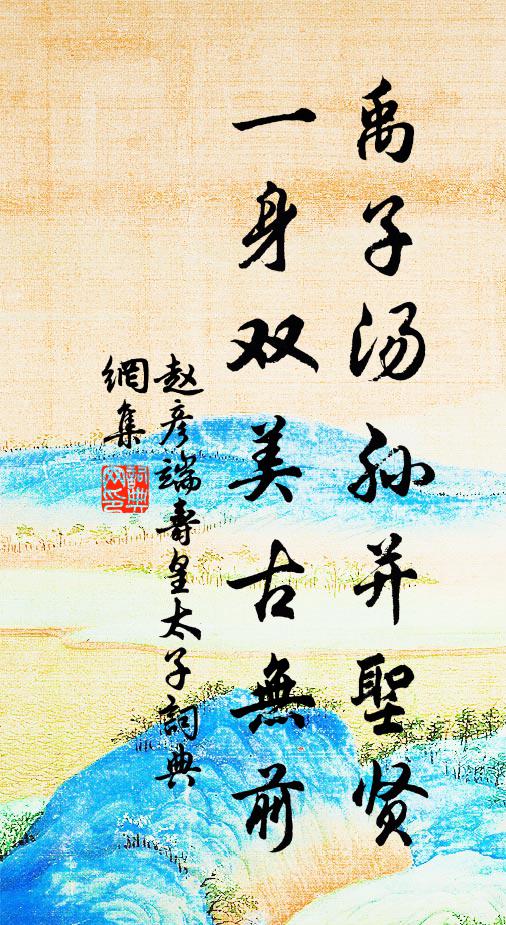 禹子汤孙并聖贤
一身双美古無前
赵彦端壽皇太子詞典
網集